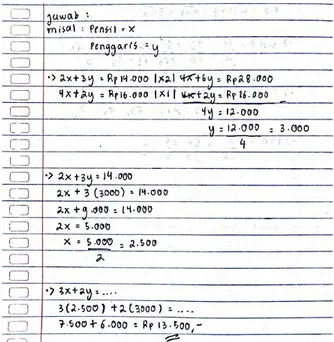 Jawab :
misal : Pensil = x
Penggaris = y
•> 2x+3y = Rp14.000 |x2| 4x+6y = Rp28.000
4x+2y = Rp16.000 |x1| 4x+2y = Rp 16.000
4y = 12.000
y = 12.000 = 3.000
4
•> 2x+3y = 14.000
2x + 3 (3000) = 14.000
2x + 9.000 = 14.000
2x = 5.000
x = 5.000 = 2.500
2
•> 3x+2y = ....
3(2.500) + 2(3000) = ....
7.500 + 6.000 = Rp 13.500,-